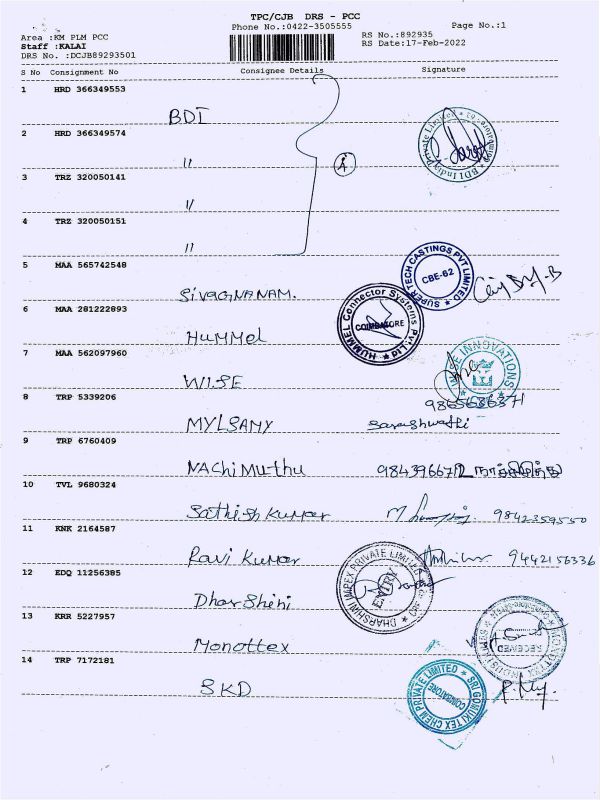 TPC/CJB DRS - PCC
Phone No.:0422-3505555
Page No.:1
Area :KM PLM PCC
Staff :KALAI
DRS No. :DCJB89293501
RS No.:892935
RS Date:17-Feb-2022
S No Consignment No Consignee Details Signature
1 HRD 366349553
BDI
2 HRD 366349574
"
3 TRZ 320050141
"
4 TRZ 320050151
"
4
BDI India Private Limited
5 MAA 565742548
SIVAGNANAM.
SUPER TECH CASTINGS PVT LIMITED
CBE-62
6 MAA 281222893
HUMMel
HUMMEL Connector Systems Pvt. Ltd.
COIMBATORE
7 MAA 562097960
WISE
WISE INNOVATIONS
8 TRP 5339206
9865686371
MYLSAMY Sarashwathi
9 TRP 6760409
NAChiMuthu
10 TVL 9680324
Sathish Kumar 9842359550
11 KNK 2164587
Ravi Kumar 9442156336
12 EDQ 11256385
Dharshini
DHARSHINI IMPEX PRIVATE LIMITED
ENTRY
13 KRR 5227957
Monottex
RECEIVED
14 TRP 7172181
SKD
SRI GOMUKI TEX CHEM PRIVATE LIMITED
COIMBATORE